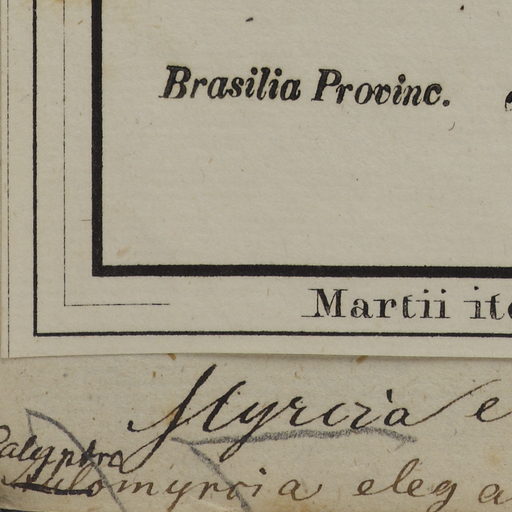 Brasilia Provinc.
Martii it
Myrcia e
Calyptra
Aulomyrcia elega